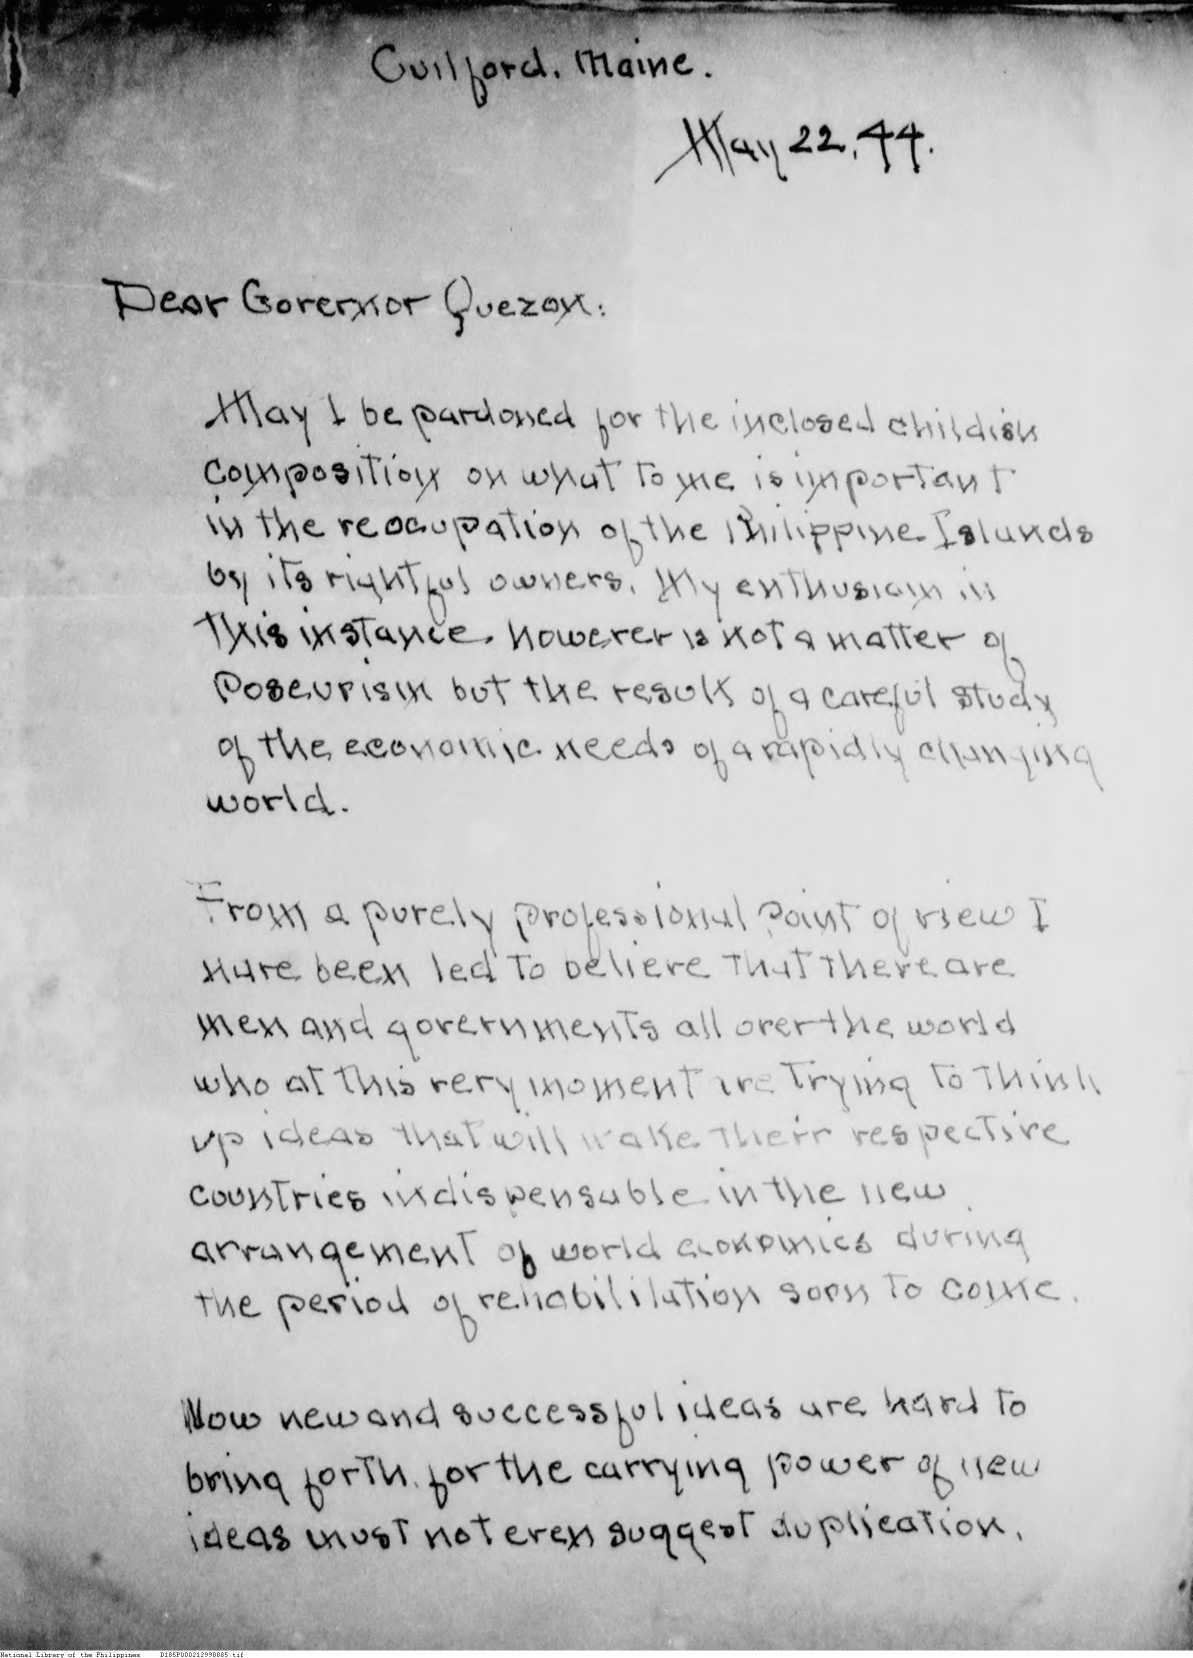 Guilford, Maine.
May 22, 44.
Dear Governor Quezon:
May I be pardoned for the inclosed childish
composition on what to me is important
in the reocupation of the Philippine Islands
by its rightful owners. My enthusiasm in
this instance, however is not a matter of
Poseurism but the result of a careful study
of the economic needs of a rapidly changing
world.
From a purely professional point of view I
have been led to believe that there are
men and governments all over the world
who at this very moment are trying to think
up ideas that will make their respective
countries indispensable in the new
arrangement of world economics during
the period of rehabilitation soon to come.
Now new and successful ideas are hard to
bring forth, for the carrying power of new
ideas must not even suggest duplication.
National Library of the Philippines D185P000212998085.tif